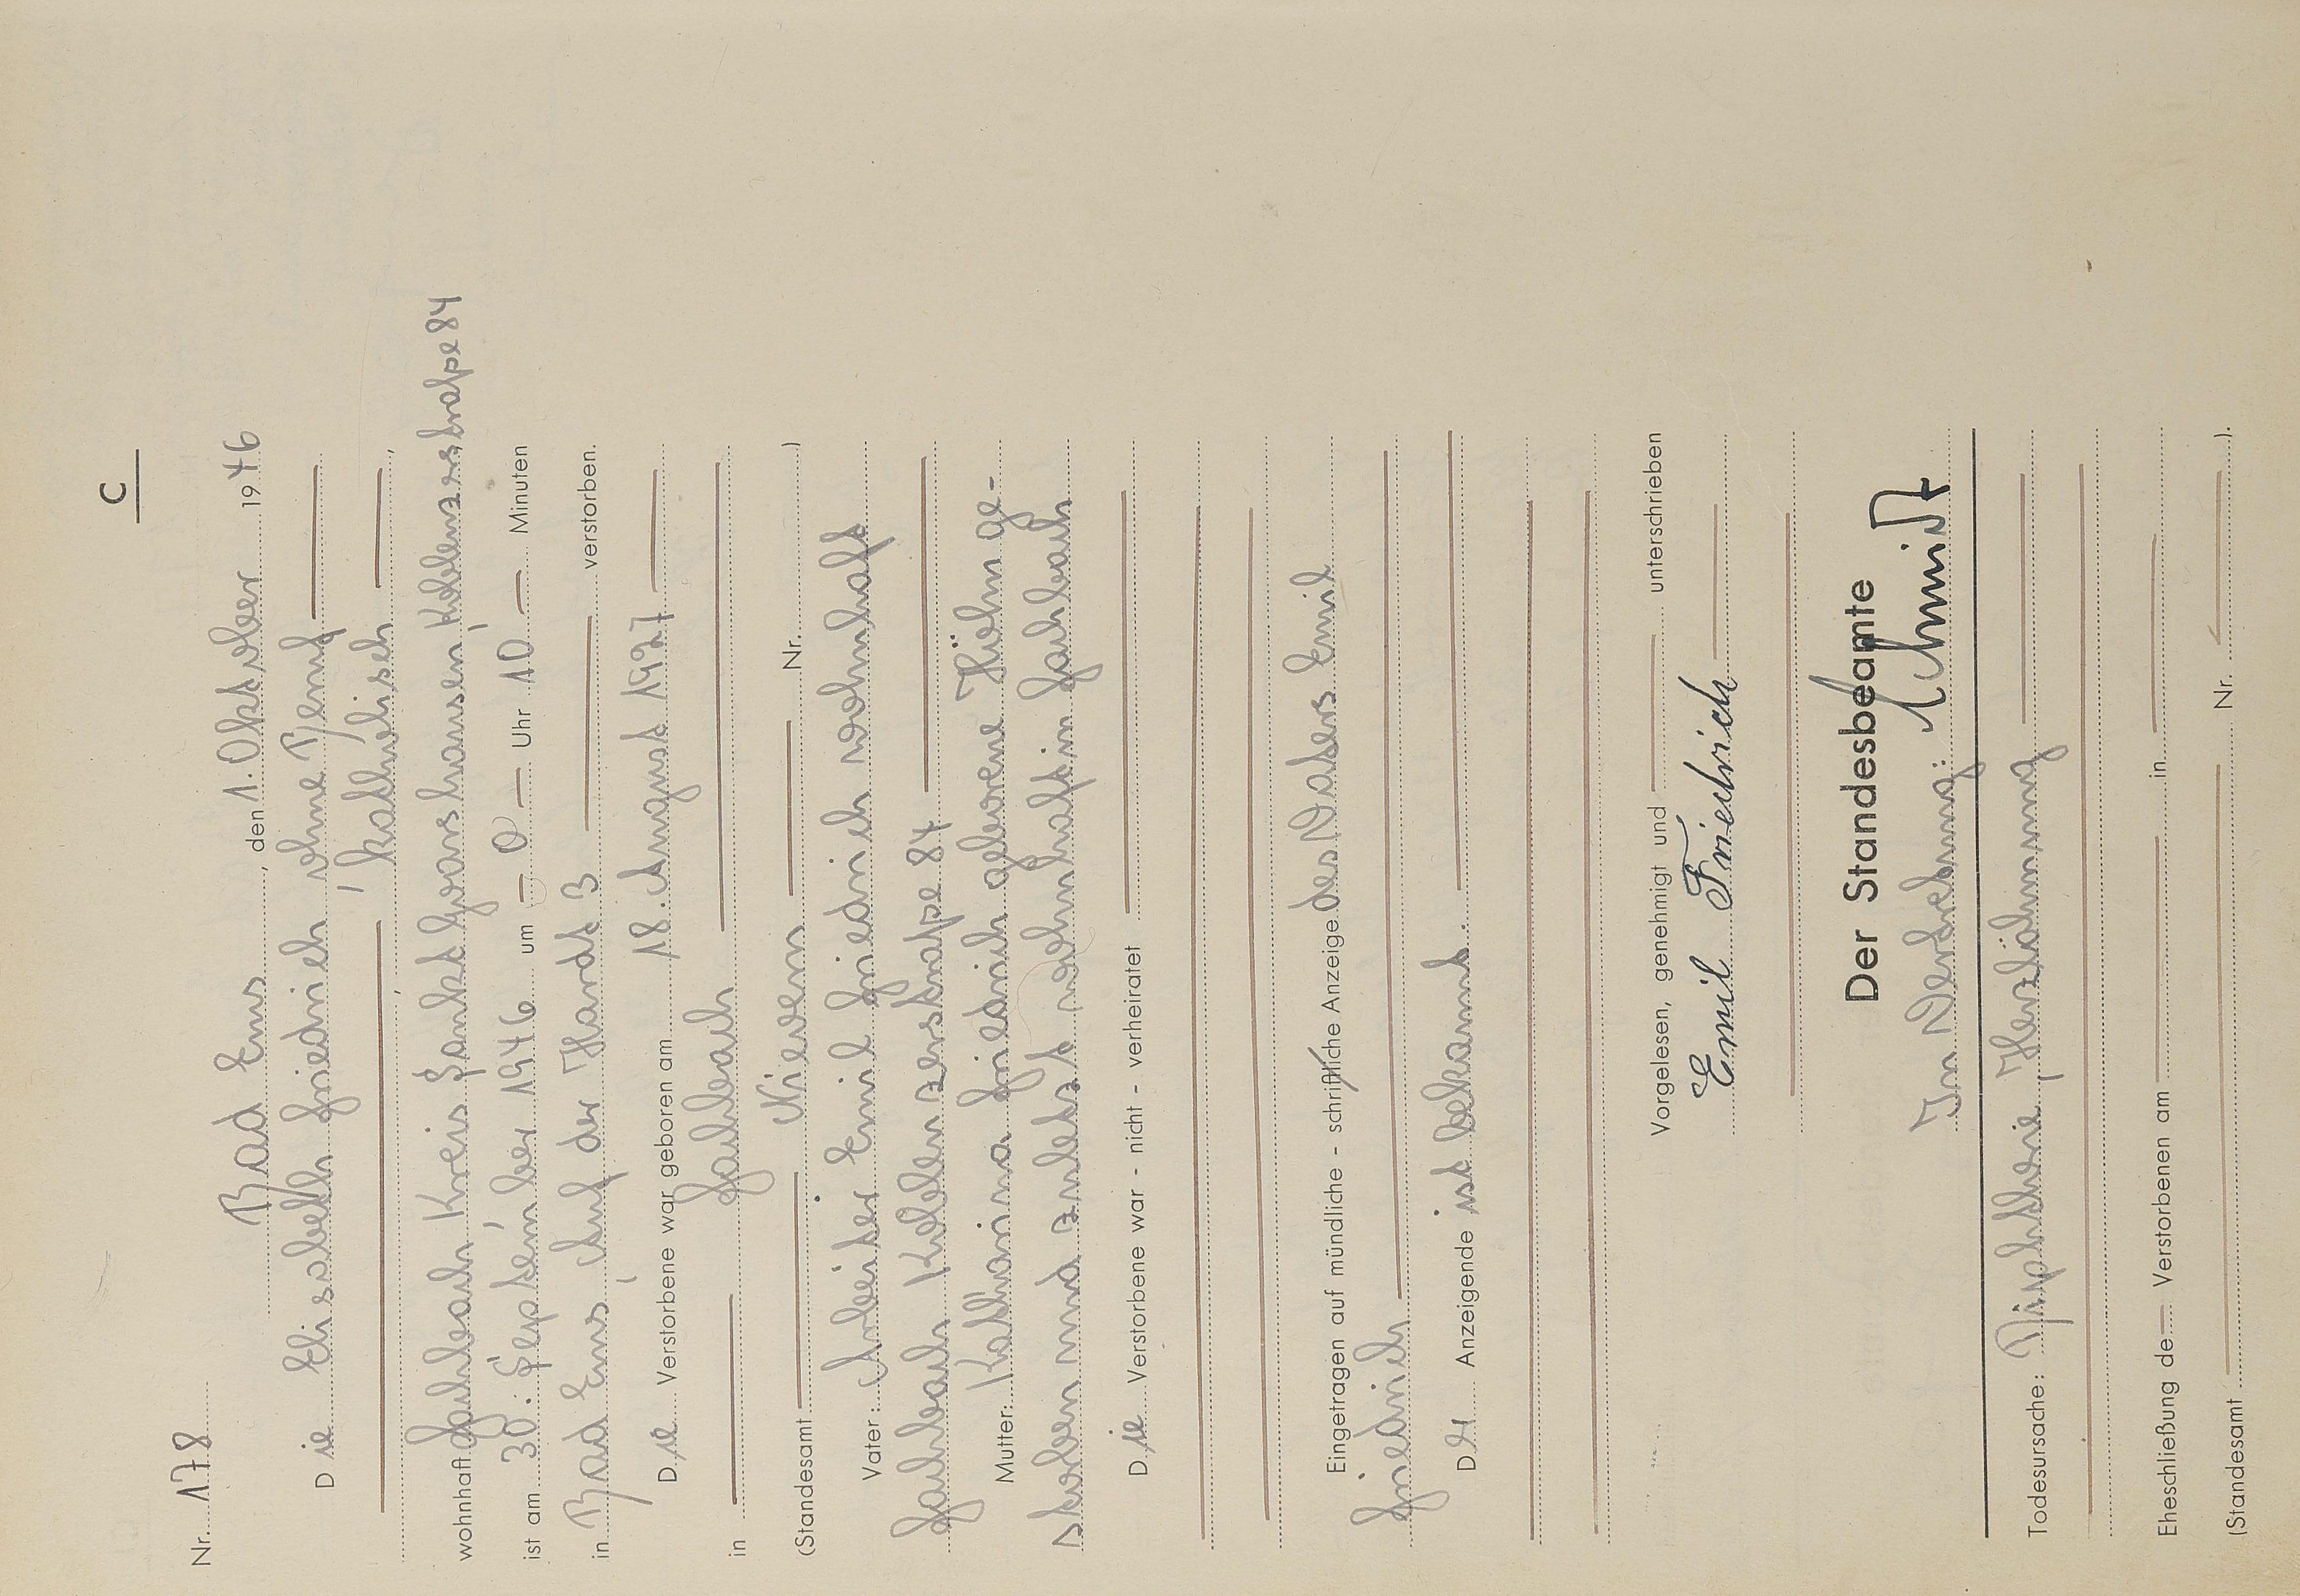 C
Nr. 178
Bad Ems, den 1. Oktober 1946
Die Elisabeth Friedrich ohne Beruf
, katholisch,
wohnhaft Fachbach Kreis Sankt Goarshausen, Koblenzerstraße 84
ist am 30. September 1946 um 0 Uhr 10 Minuten
in Bad Ems, Auf der Hardt 3 verstorben.
Die Verstorbene war geboren am 18. August 1927
in Fachbach
(Standesamt Nievern Nr. )
Vater: Arbeiter Emil Friedrich wohnhaft
Fachbach Koblenzerstraße 84
Mutter: Katharina Friedrich geborene Höhn ge-
storben und zuletzt wohnhaft in Fachbach
Die Verstorbene war - nicht - verheiratet
Eingetragen auf mündliche - schriftliche Anzeige des Vaters Emil
Friedrich
Der Anzeigende ist bekannt.
Vorgelesen, genehmigt und unterschrieben
Emil Friedrich
Der Standesbeamte
In Vertretung: Schmidt
Todesursache: Diphtherie, Herzlähmung
Eheschließung de Verstorbenen am in
(Standesamt Nr. ).